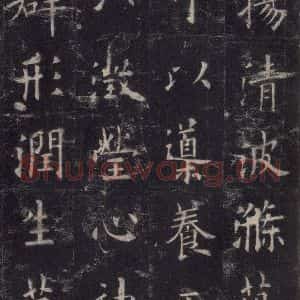 揚清波滌
以導養
澂瑩心
群形潤生
Shufawang.cn